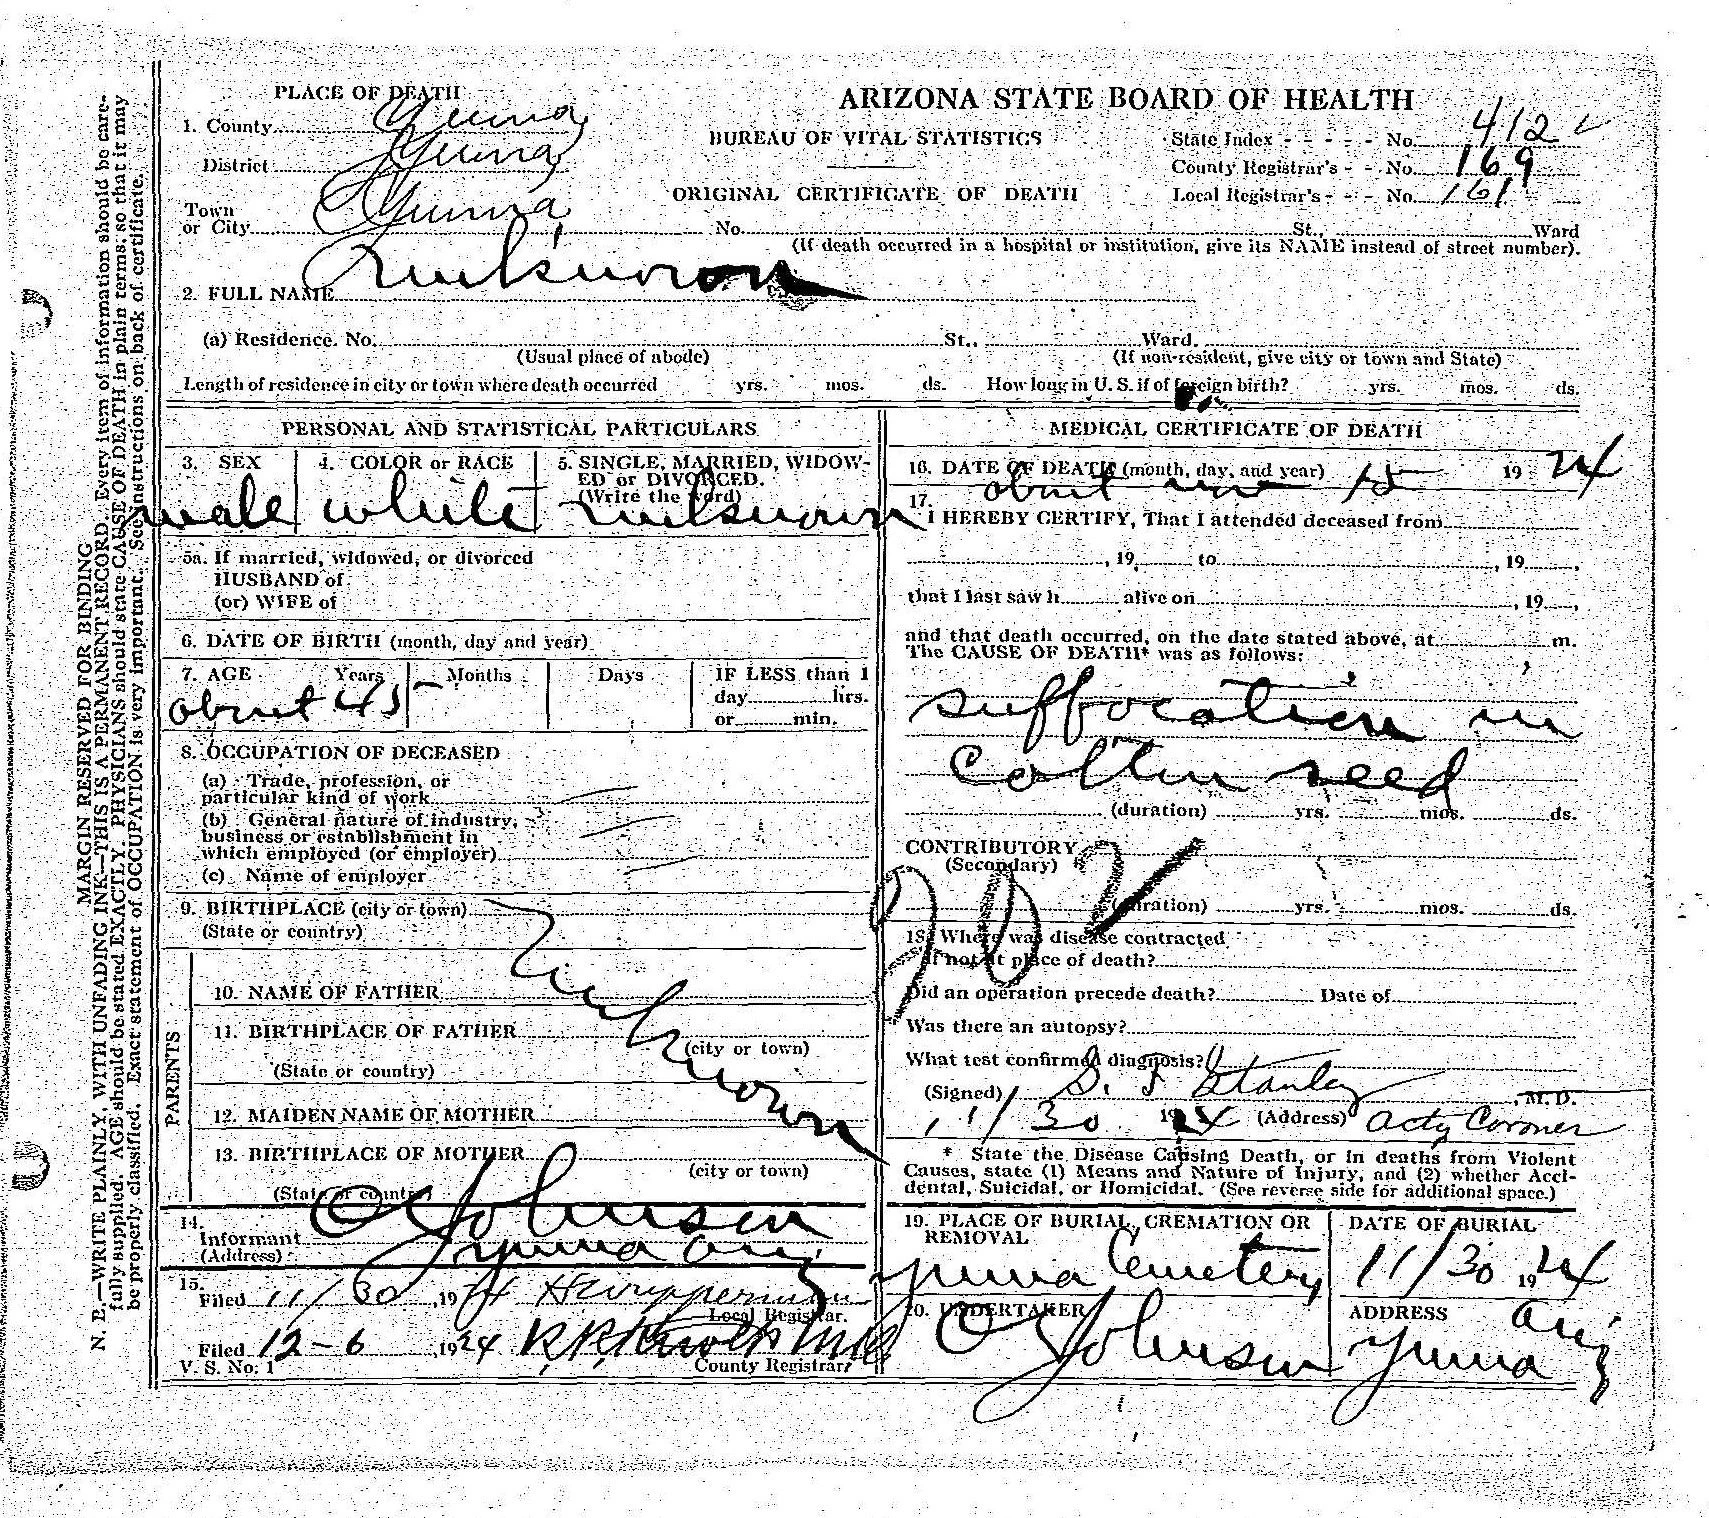 PLACE OF DEATH
1. County Yuma
District Yuma
Town or City Yuma No. St., Ward
(If death occurred in a hospital or institution, give its NAME instead of street number).
ARIZONA STATE BOARD OF HEALTH
BUREAU OF VITAL STATISTICS
ORIGINAL CERTIFICATE OF DEATH
State Index - - - - - No. 412
County Registrar's - - No. 169
Local Registrar's - - - No. 161
2. FULL NAME Unknown
(a) Residence. No. St., Ward.
(Usual place of abode) (If non-resident, give city or town and State)
Length of residence in city or town where death occurred yrs. mos. ds. How long in U. S. if of foreign birth? yrs. mos. ds.
PERSONAL AND STATISTICAL PARTICULARS
3. SEX
male
4. COLOR or RACE
white
5. SINGLE, MARRIED, WIDOW-
ED or DIVORCED.
(Write the word)
unknown
5a. If married, widowed, or divorced
HUSBAND of
(or) WIFE of
6. DATE OF BIRTH (month, day and year)
7. AGE Years Months Days IF LESS than 1
day hrs.
or min.
about 45
8. OCCUPATION OF DECEASED
(a) Trade, profession, or
particular kind of work
(b) General nature of industry,
business or establishment in
which employed (or employer)
(c) Name of employer
9. BIRTHPLACE (city or town)
(State or country)
Unknown
PARENTS
10. NAME OF FATHER
11. BIRTHPLACE OF FATHER
(city or town)
(State or country)
12. MAIDEN NAME OF MOTHER
13. BIRTHPLACE OF MOTHER
(city or town)
(State or country)
14.
Informant O Johnson
(Address) Yuma Ariz
15.
Filed 11/30, 1924
Local Registrar.
Filed 12-6, 1924
County Registrar.
V. S. No. 1
MEDICAL CERTIFICATE OF DEATH
16. DATE OF DEATH (month, day, and year) about nov 15 1924
17.
I HEREBY CERTIFY, That I attended deceased from
, 19 to , 19 ,
that I last saw h alive on , 19 ,
and that death occurred, on the date stated above, at m.
The CAUSE OF DEATH* was as follows:
suffocation in
cotton seed
(duration) yrs. mos. ds.
CONTRIBUTORY
(Secondary)
(duration) yrs. mos. ds.
18. Where was disease contracted
if not at place of death?
Did an operation precede death? Date of
Was there an autopsy?
What test confirmed diagnosis?
(Signed) S. F Stanley, M. D.
11/30 1924 (Address) Actg Coroner
* State the Disease Causing Death, or in deaths from Violent
Causes, state (1) Means and Nature of Injury, and (2) whether Acci-
dental, Suicidal, or Homicidal. (See reverse side for additional space.)
19. PLACE OF BURIAL, CREMATION OR
REMOVAL
Yuma Cemetery
DATE OF BURIAL
11/30 1924
20. UNDERTAKER
O Johnson
ADDRESS
Yuma Ariz
MARGIN RESERVED FOR BINDING
N. B.—WRITE PLAINLY, WITH UNFADING INK—THIS IS A PERMANENT RECORD. Every item of information should be care-
fully supplied. AGE should be stated EXACTLY. PHYSICIANS should state CAUSE OF DEATH in plain terms, so that it may
be properly classified. Exact statement of OCCUPATION is very important. See instructions on back of certificate.